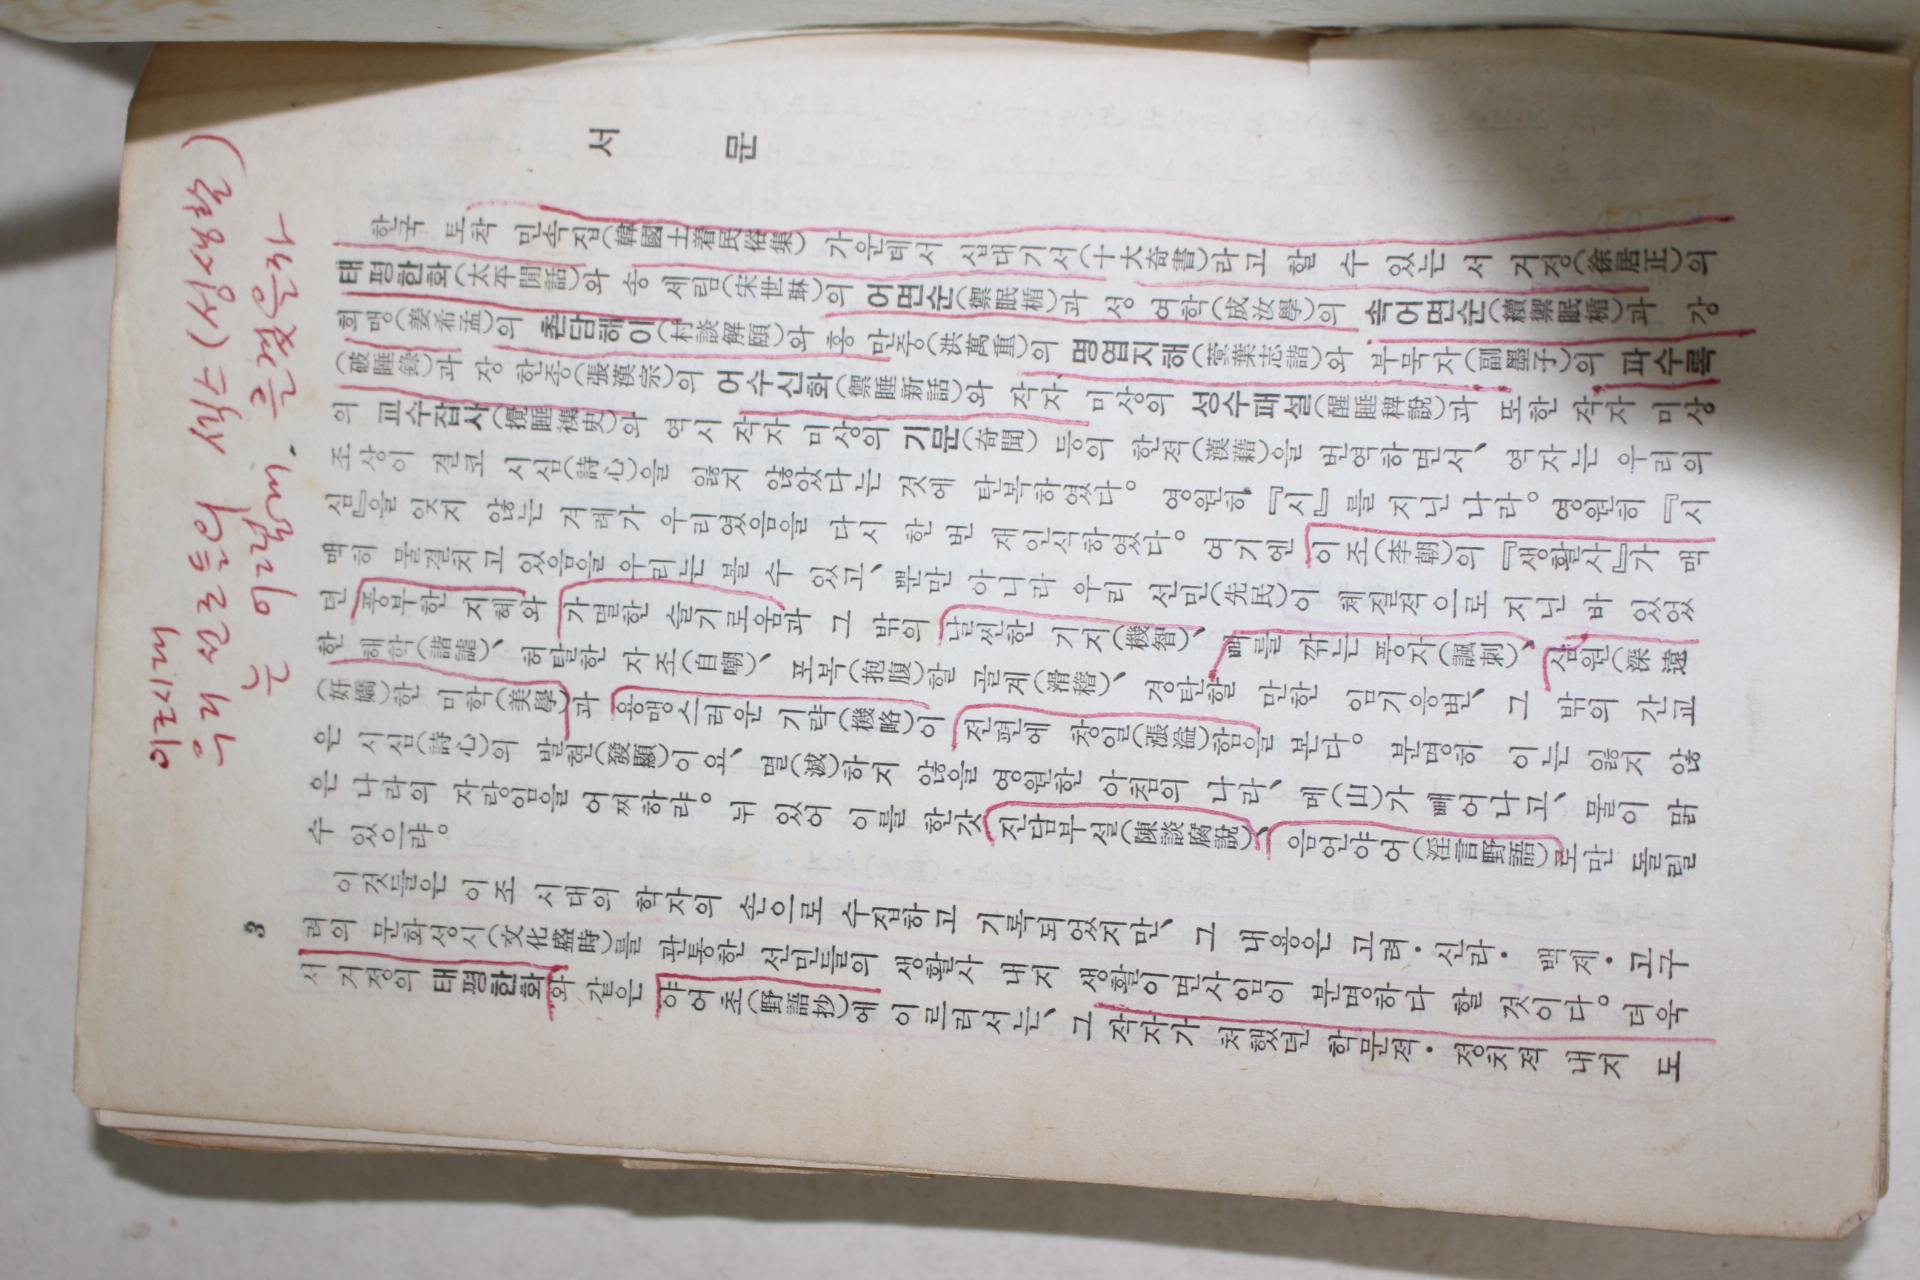 이조시대
우리 선조들의 섹스(성생활)
서 문
한국 토착 민속집(韓國土着民俗集) 가운데서 십대기서(十大奇書)라고 할 수 있는 서 거정(徐居正)의
태평한화(太平閒話)와 송 세림(宋世琳)의 어면순(禦眠楯)과 성 여학(成汝學)의 속어면순(續禦眠楯)과 강
희맹(姜希孟)의 촌담해이(村談解頤)와 홍 만중(洪萬重)의 명엽지해(蓂葉志諧)와 부묵자(副墨子)의 파수록
(破睡錄)과 장 한종(張漢宗)의 어수신화(禦睡新話)와 작자 미상의 성수패설(醒睡稗說)과 또한 작자 미상
의 교수잡사(攪睡襍史)와 역시 작자 미상의 기문(奇聞) 등의 한적(漢籍)을 번역하면서, 역자는 우리의
조상이 결코 시심(詩心)을 잃지 않았다는 것에 탄복하였다. 영원히 『시』를 지닌 나라. 영원히 『시
심』을 잊지 않는 겨레가 우리였음을 다시 한 번 재인식하였다. 여기엔 이조(李朝)의 『생활사』가 맥
맥히 물결치고 있음을 우리는 볼 수 있고, 뿐만 아니라 우리 선민(先民)이 체질적으로 지닌 바 있었
던 풍부한 지혜와 가멸한 슬기로움과 그 밖의 날씬한 기지(機智), 뼈를 깎는 풍자(諷刺), 심원(深遠
한 해학(諧謔), 허탈한 자조(自嘲), 포복(抱腹)할 골계(滑稽), 경탄할 만한 임기응변, 그 밖의 간교
(奸嬌)한 미학(美學)과 용맹스러운 기략(機略)이 전편에 창일(漲溢)함을 본다. 분명히 이는 잃지 않
은 시심(詩心)의 발현(發顯)이요, 멸(滅)하지 않을 영원한 아침의 나라, 메(山)가 빼어나고, 물이 맑
은 나라의 자랑임을 어찌하랴. 뉘 있어 이를 한갓 진담부설(陳談腐說), 음언야어(淫言野語)로만 돌릴
수 있으랴.
이것들은 이조 시대의 학자의 손으로 수집하고 기록되었지만, 그 내용은 고려·신라·백제·고구
려의 문화성시(文化盛時)를 관통한 선민들의 생활사 내지 생활이면사임이 분명하다 할 것이다. 더욱
서 거정의 태평한화와 같은 야어초(野語抄)에 이르러서는, 그 작자가 처했던 학문적·정치적 내지 도
3